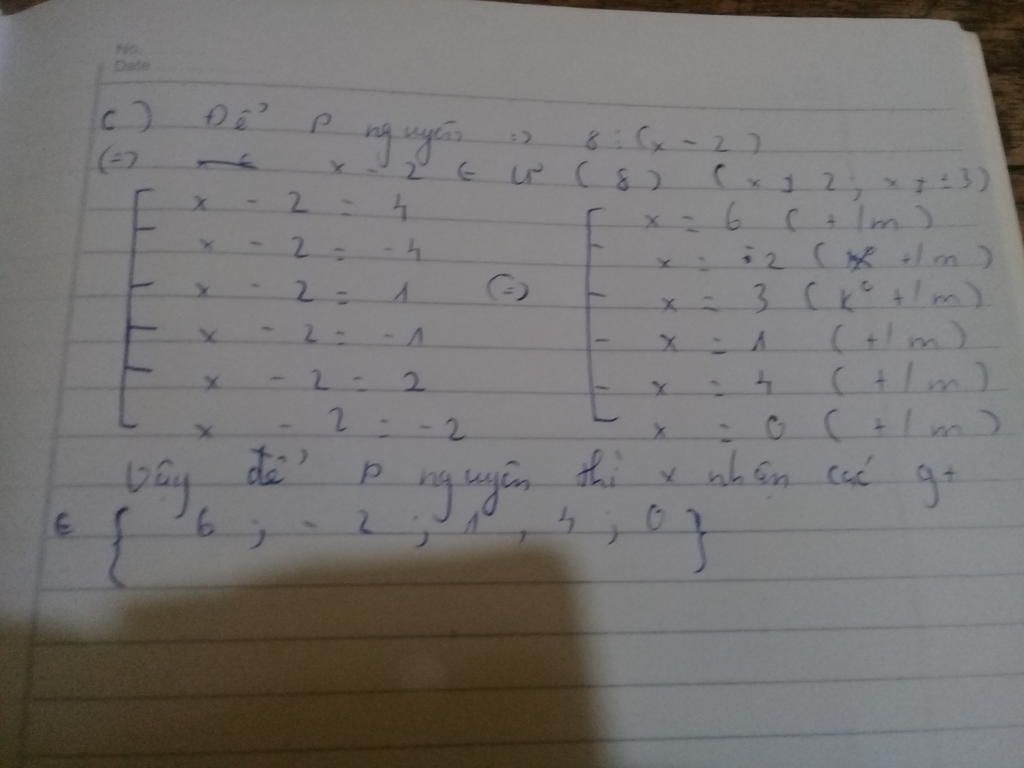 No.
Date
c) Để P nguyên => 8 ⋮ (x - 2)
(=) x - 2 ∈ Ư (8) (x ≠ 2 ; x ≠ ± 3)
x - 2 = 4 x = 6 (t/m)
x - 2 = -4 x = -2 (t/m)
x - 2 = 1 (=) x = 3 (k° t/m)
x - 2 = -1 x = 1 (t/m)
x - 2 = 2 x = 4 (t/m)
x - 2 = -2 x = 0 (t/m)
Vậy để P nguyên thì x nhận các gt
∈ { 6 ; - 2 ; 1 , 4 ; 0 }